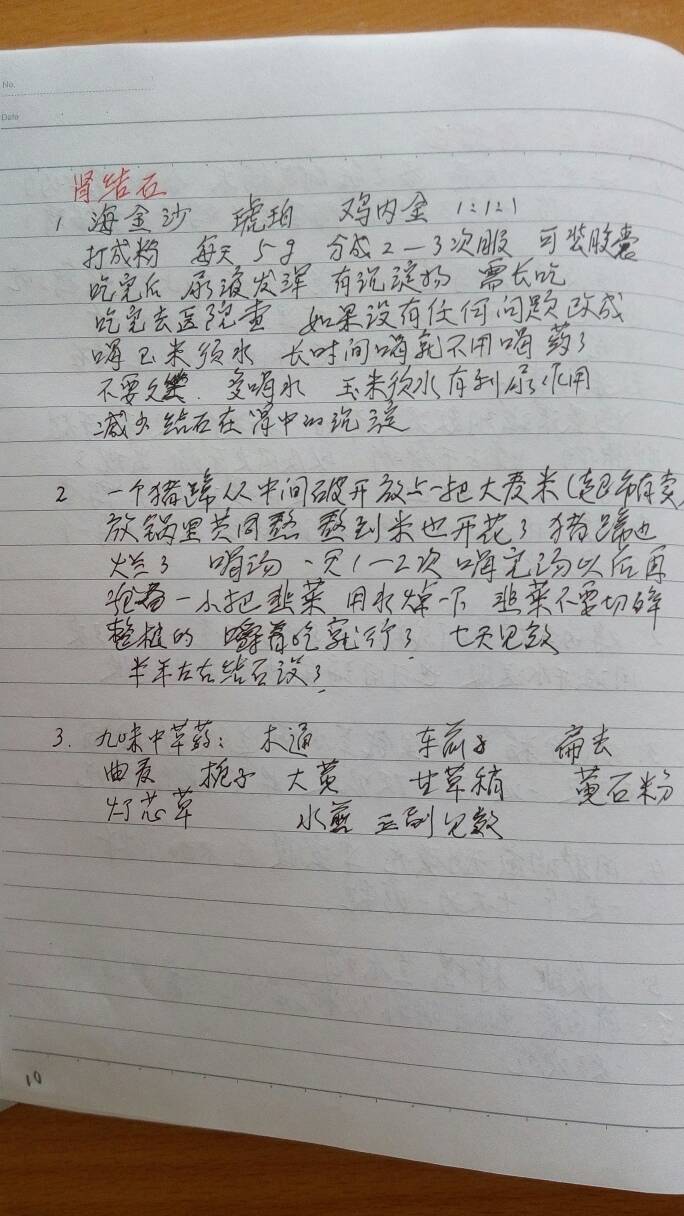 No.
Date
肾结石
1 海金沙 琥珀 鸡内金 1:1:1
打成粉 每天5g 分成2—3次服 可装胶囊
吃完后 尿液发浑 有沉淀物 需长吃
吃完去医院查 如果没有任何问题改成
喝玉米须水 长时间喝就不用喝药了
不要久坐. 多喝水 玉米须水有利尿作用
减少结石在肾中的沉淀
2 一个猪蹄从中间破开放上一把大麦米(超市有卖)
放锅里共同熬 熬到米也开花了 猪蹄也
烂了 喝汤 一天1—2次 喝完汤以后再
吃 一小把韭菜 用水焯一下 韭菜不要切碎
整植的 嚼着吃就行了 七天见效
半年左右结石没了
3. 九味中草药: 木通 车前子 扁去
曲麦 栀子 大黄 甘草稍 黄石粉
灯芯草 水煎 三副见效
10